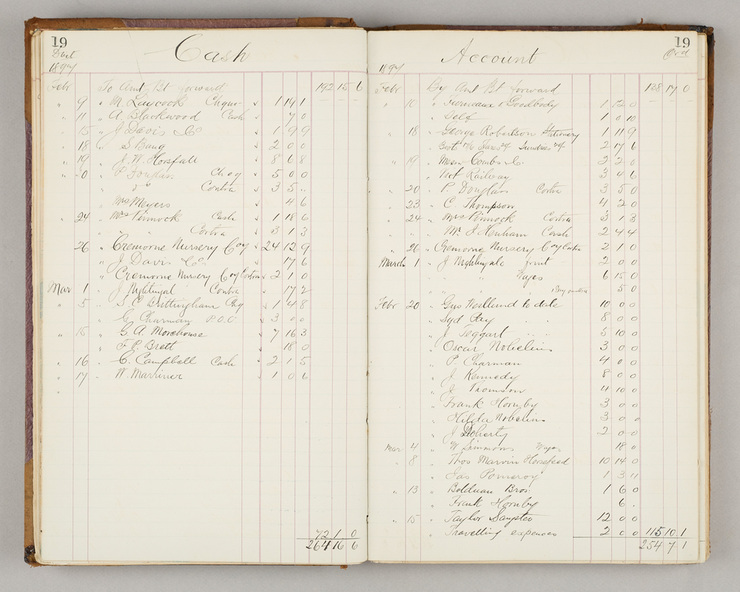 19
Cash
1897
Feb To Amt Bt forward 192 15 6
" 9 " M Laycock Cheque " 1 19 1
" 11 " A Blackwood Cash " 7 0
15 " J Davis & Co " 1 9 9
" 18 " 2 0 0
" 19 " J. W. Horsfall " 8 6 8
" Chq " 5 0 0
" Contra " 3 5
Mrs Meyers " 4 6
" 24 " Mrs Pinnock Cash " 1 18 6
" Contra " 3 1 3
" 26 " Cremorne Nursery Coy " 24 12 9
" J. Davis & Co. " 17 6
" Cremorne Nursery Coy Contra " 2 1 0
Mar 1 " J Nightingal Contra " 17 2
" 5 " Brittingham Chq " 1 4 8
" Charman P.O.O. " 3
" 15 " G. A. Morehouse " 7 16 3
" Brett " 18 0
" 16 " C. Campbell Cash " 2 1 5
" 17 " W. Marriner " 1 0 6
"
72 1 0
264 16 6
19
Account
1897
Feb By Amt Bt forward 138 17 0
" & Goodbody 1 12 0
" Self 1 0 10
" 18 " George Robertson Stationery 1 11 9
" 2 17 6
" 19 " 2 2 0
" Vict Railway 3 4 6
" 20 " P Douglas Contra 3 5 0
" 23 " C. Thompson 4 2 0
" 24 " Mrs Pinnock Contra 3 1 3
" Cash 2 4 4
" 26 " Cremorne Nursery Coy Contra 2 1 0
March 1 " J Nightingale 2 0 0
" Wages 6 15 0
" 5 0
Febr 20 " Gus Wedlund to date 10 0 0
" Syd Fry 8 0 0
" J. Taggart " " 5 10 0
" Oscar Nobelius 3 0 0
" P. Charman 4 0 0
" J. Kennedy 8 0 0
" J. Thomson 4 10 0
" Frank Hornby 3 0 0
" Hilda Nobelius 3 0 0
" J. Doherty 2 0 0
Mar 4 " W Simmons Wages 18 0
" 8 " Thos Marvin Horsfeed 10 14 0
" Pomeroy
" 13 " Bolduan Bros 1 6 0
" Frank Hornby 6
" 15 " Taylor Sangster 12 0 0
" Travelling expenses 2 0 0 115 10 1
254 7 1